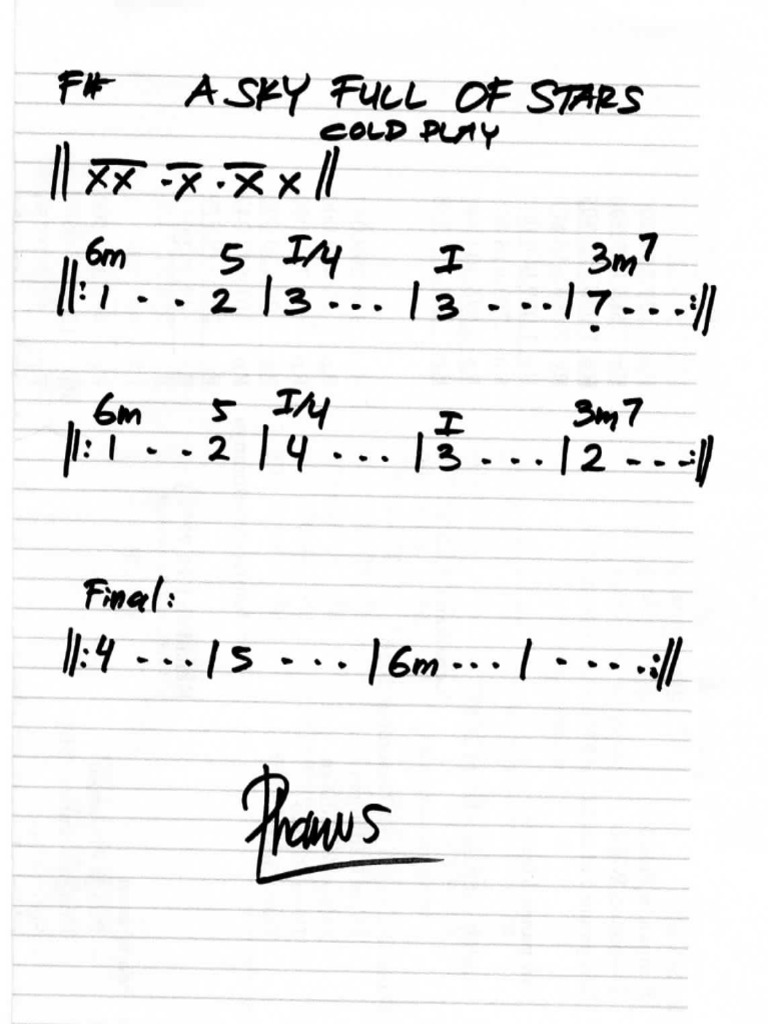 F# A SKY FULL OF STARS
COLD PLAY
|| XX .X .X X ||
6m 5 I/4 I 3m7
||: 1 . . 2 | 3 . . . | 3 . . . | 7 . . . :||
6m 5 I/4 I 3m7
||: 1 . . 2 | 4 . . . | 3 . . . | 2 . . . :||
Final:
||: 4 . . . | 5 . . . | 6m . . . | . . . . :||